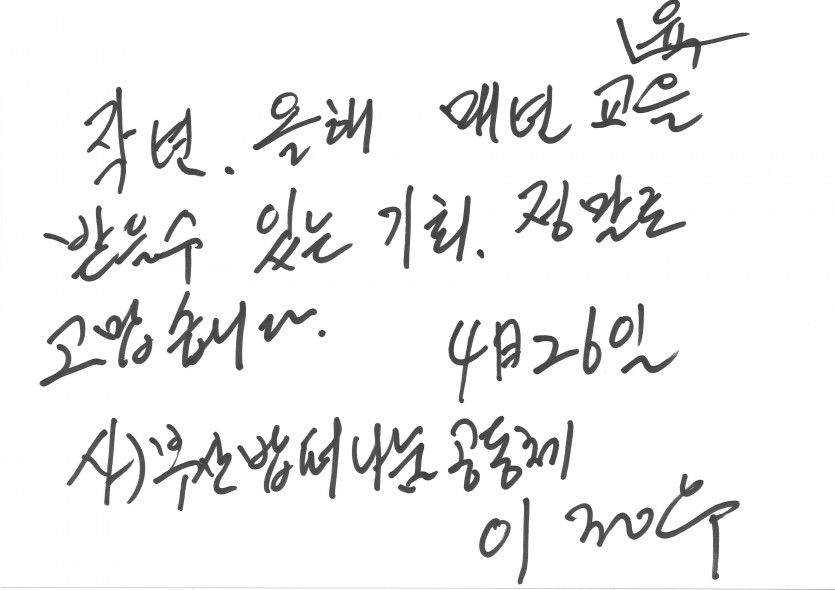 육
작년. 올해 매년 교을
받을수 있는 기회. 정말로
고맙습니다. 4月26일
사)부산밥퍼나눔공동체
이